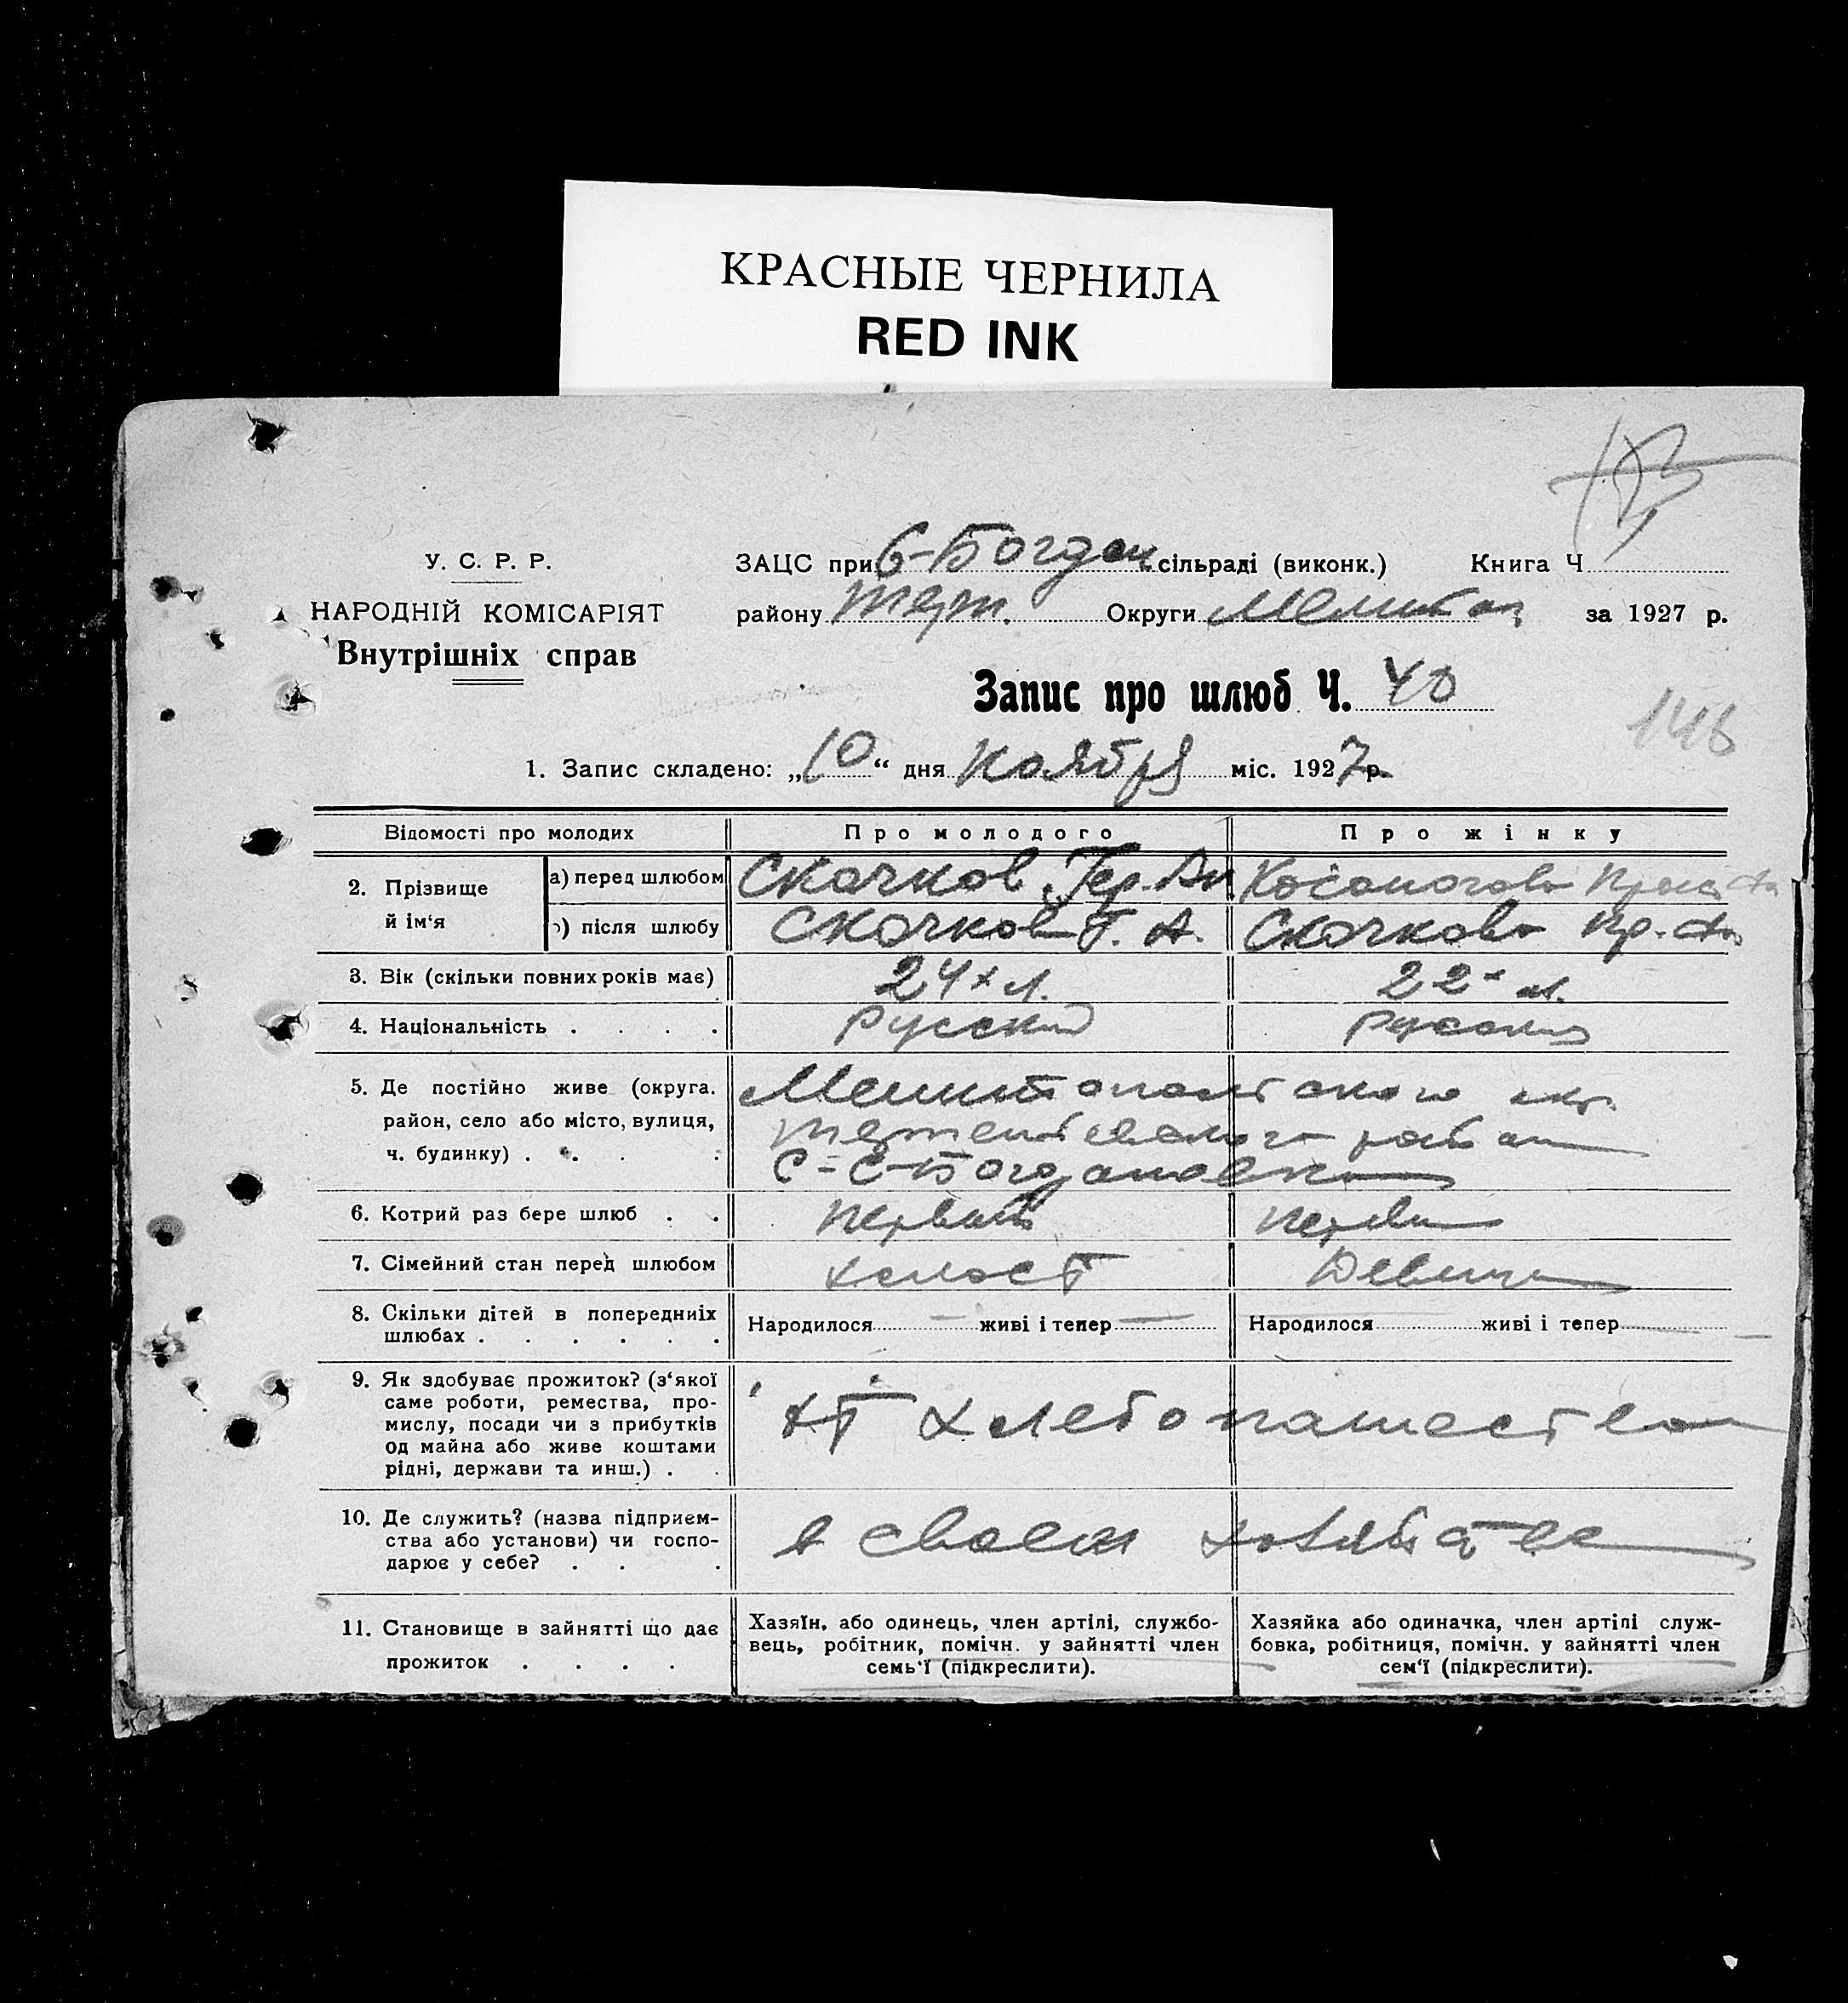 КРАСНЫЕ ЧЕРНИЛА
RED INK
У. С. Р. Р.
НАРОДНІЙ КОМІСАРІЯТ
Внутрішніх справ
ЗАЦС при С-Богдан сільраді (виконк.) Книга Ч
району Терп. Округи Мелитоп за 1927 р.
Запис про шлюб Ч. 40
146
1. Запис складено: „10“ дня Ноября міс. 1927 р.
Відомості про молодих Про молодого Про жінку
2. Прізвище й ім‘я
а) перед шлюбом Скачков Гер. Ан
) після шлюбу Скачков Г. А. Скачкова Пр.
3. Вік (скільки повних років має) 24х л. 22х л.
4. Національність . . . . Русский Русская
5. Де постійно живе (округа. Мелитопольского окр.
район, село або місто, вулиця, Терпеньевского района
ч. будинку) . . . . С-С-Богдановка
6. Котрий раз бере шлюб . . Первый Первый
7. Сімейний стан перед шлюбом холост Девица
8. Скільки дітей в попередниіх
шлюбах . . . . . . Народилося живі і тепер Народилося живі і тепер
9. Як здобуває прожиток? (з‘якої
саме роботи, ремества, про-
мислу, посади чи з прибутків хлебопашество
од майна або живе коштами
рідні, держави та инш.) . .
10. Де служить? (назва підприєм-
ства або установи) чи госпо- в своем хозяйстве
дарює у себе? . . .
11. Становище в зайнятті що дає
прожиток . . . .
Хазяїн, або одинець, член артілі, службо-
вець, робітник, помічн. у зайнятті член
семь‘ї (підкреслити).
Хазяйка або одиначка, член артілі служ-
бовка, робітниця, помічн. у зайнятті член
сем‘ї (підкреслити).